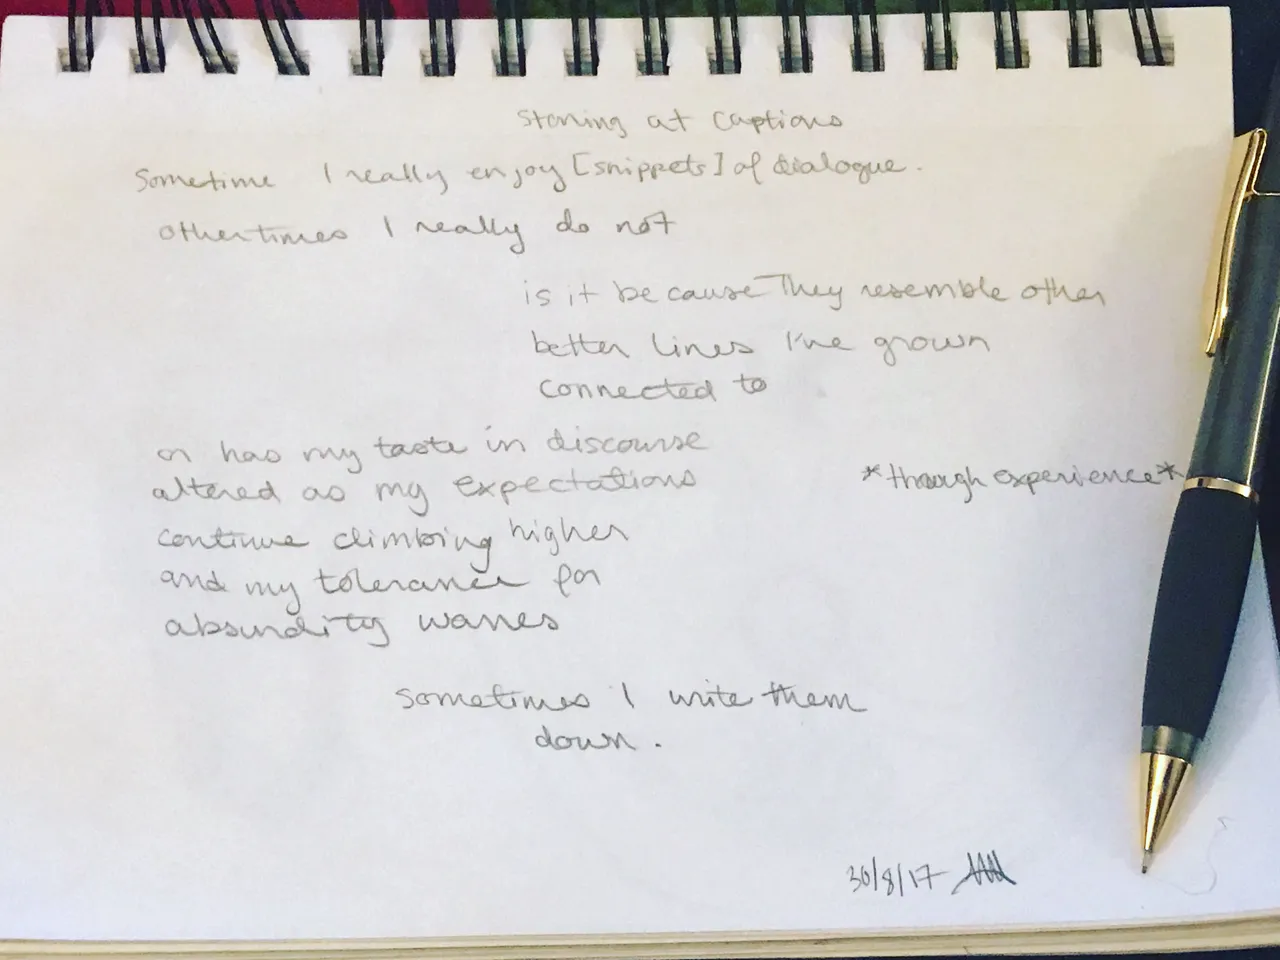 Staring at Captions
Sometime I really enjoy [snippets] of dialogue.
other times I really do not
is it because They resemble other
better lines I've grown
connected to
or has my taste in discourse
altered as my expectations
*through experience*
continue climbing higher
and my tolerance for
absurdity wanes
sometimes I write them
down.
30/8/17